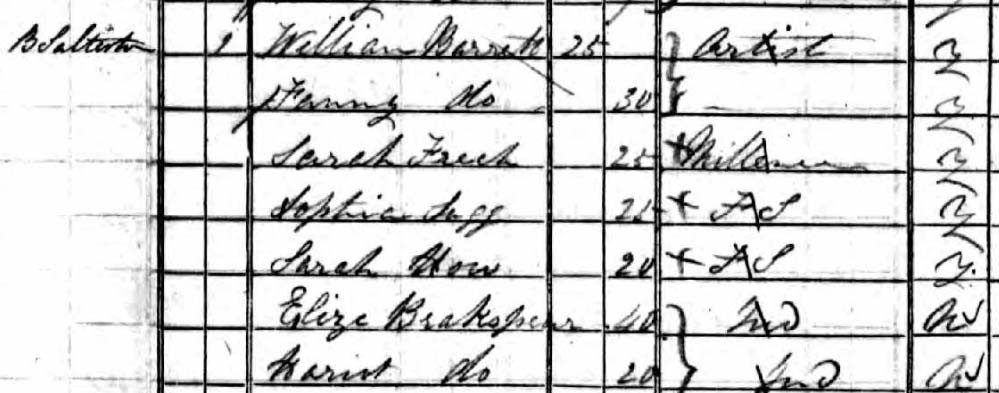 B Salterton 1 William Barrett 25 Artist Y
Fanny do 30 Y
Sarah 25 Milliner Y
Sophia Sugg 25 F S Y
Sarah How 20 F S Y
Eliza Brakspear 40 Ind N
Hariot do 20 Ind N